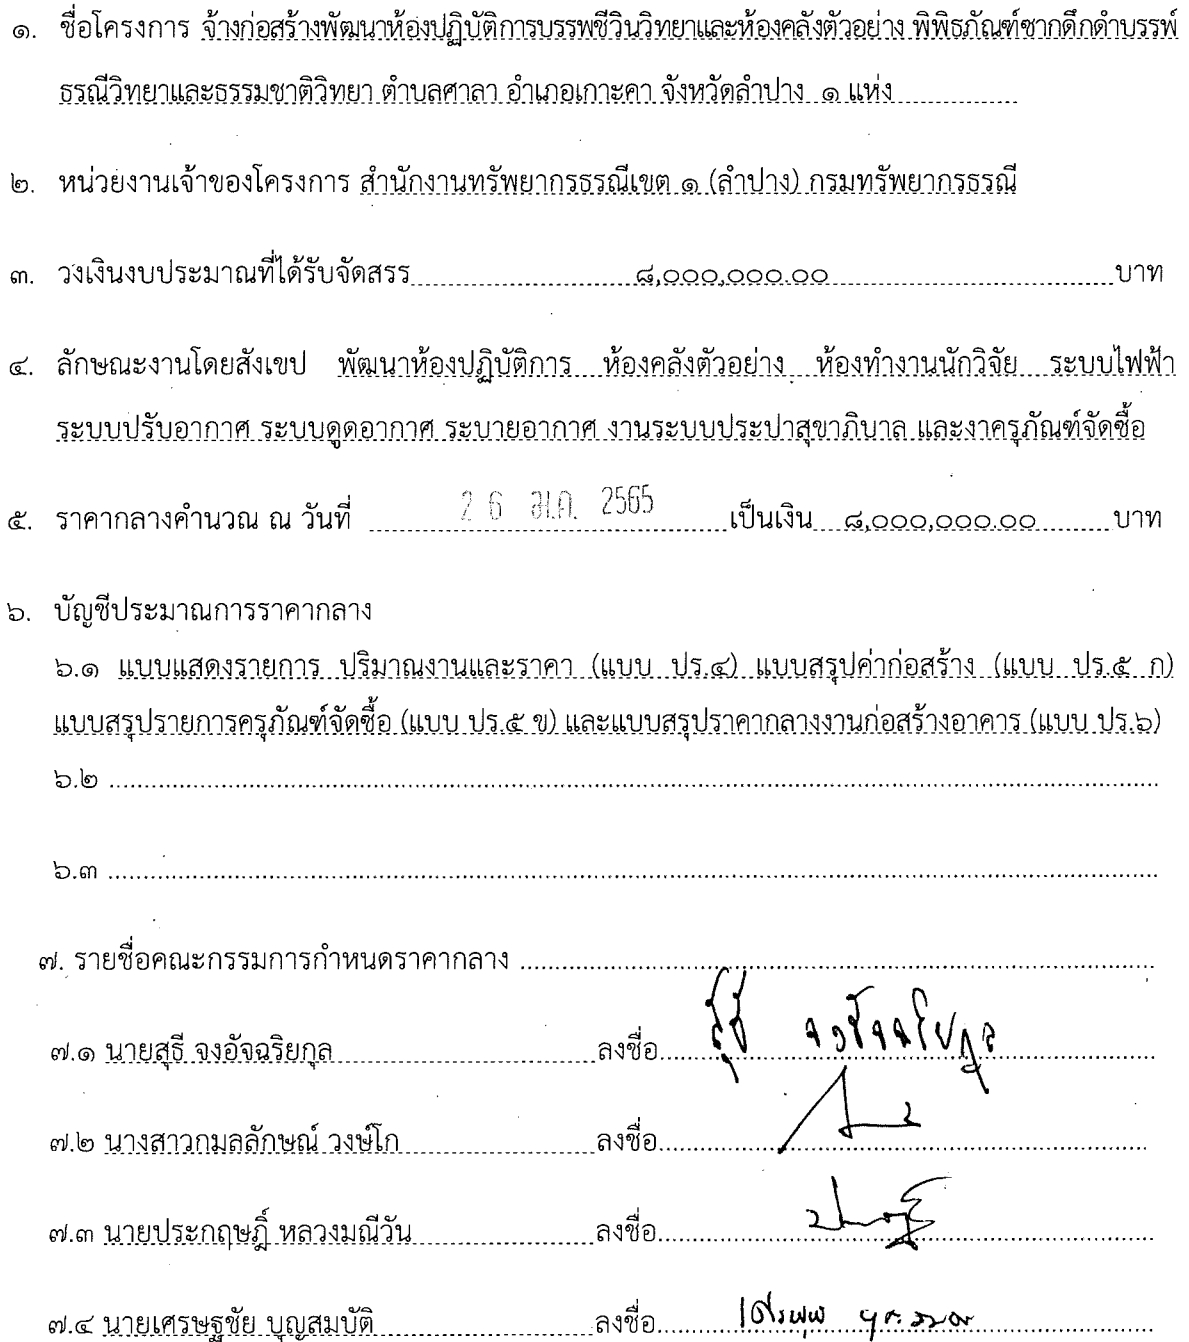 ๑. ชื่อโครงการ จ้างก่อสร้างพัฒนาห้องปฏิบัติการบรรพชีวินวิทยาและห้องคลังตัวอย่าง พิพิธภัณฑ์ซากดึกดำบรรพ์
ธรณีวิทยาและธรรมชาติวิทยา ตำบลศาลา อำเภอเกาะคา จังหวัดลำปาง ๑ แห่ง
๒. หน่วยงานเจ้าของโครงการ สำนักงานทรัพยากรธรณีเขต ๑ (ลำปาง) กรมทรัพยากรธรณี
๓. วงเงินงบประมาณที่ได้รับจัดสรร ๘,๐๐๐,๐๐๐.๐๐ บาท
๔. ลักษณะงานโดยสังเขป พัฒนาห้องปฏิบัติการ ห้องคลังตัวอย่าง ห้องทำงานนักวิจัย ระบบไฟฟ้า
ระบบปรับอากาศ ระบบดูดอากาศ ระบายอากาศ งานระบบประปาสุขาภิบาล และงาครุภัณฑ์จัดซื้อ
๕. ราคากลางคำนวณ ณ วันที่ 2 6 2565 เป็นเงิน ๘,๐๐๐,๐๐๐.๐๐ บาท
๖. บัญชีประมาณการราคากลาง
๖.๑ แบบแสดงรายการ ปริมาณงานและราคา (แบบ ปร.๔) แบบสรุปค่าก่อสร้าง (แบบ ปร.๕ ก)
แบบสรุปรายการครุภัณฑ์จัดซื้อ (แบบ ปร.๕ ข) และแบบสรุปราคากลางงานก่อสร้างอาคาร (แบบ ปร.๖)
๖.๒
๖.๓
๗. รายชื่อคณะกรรมการกำหนดราคากลาง
๗.๑ นายสุธี จงอัจฉริยกุล ลงชื่อ สุธี จงอัจฉริยกุล
๗.๒ นางสาวกมลลักษณ์ วงษ์โก ลงชื่อ
๗.๓ นายประกฤษฎิ์ หลวงมณีวัน ลงชื่อ
๗.๔ นายเศรษฐชัย บุญสมบัติ ลงชื่อ